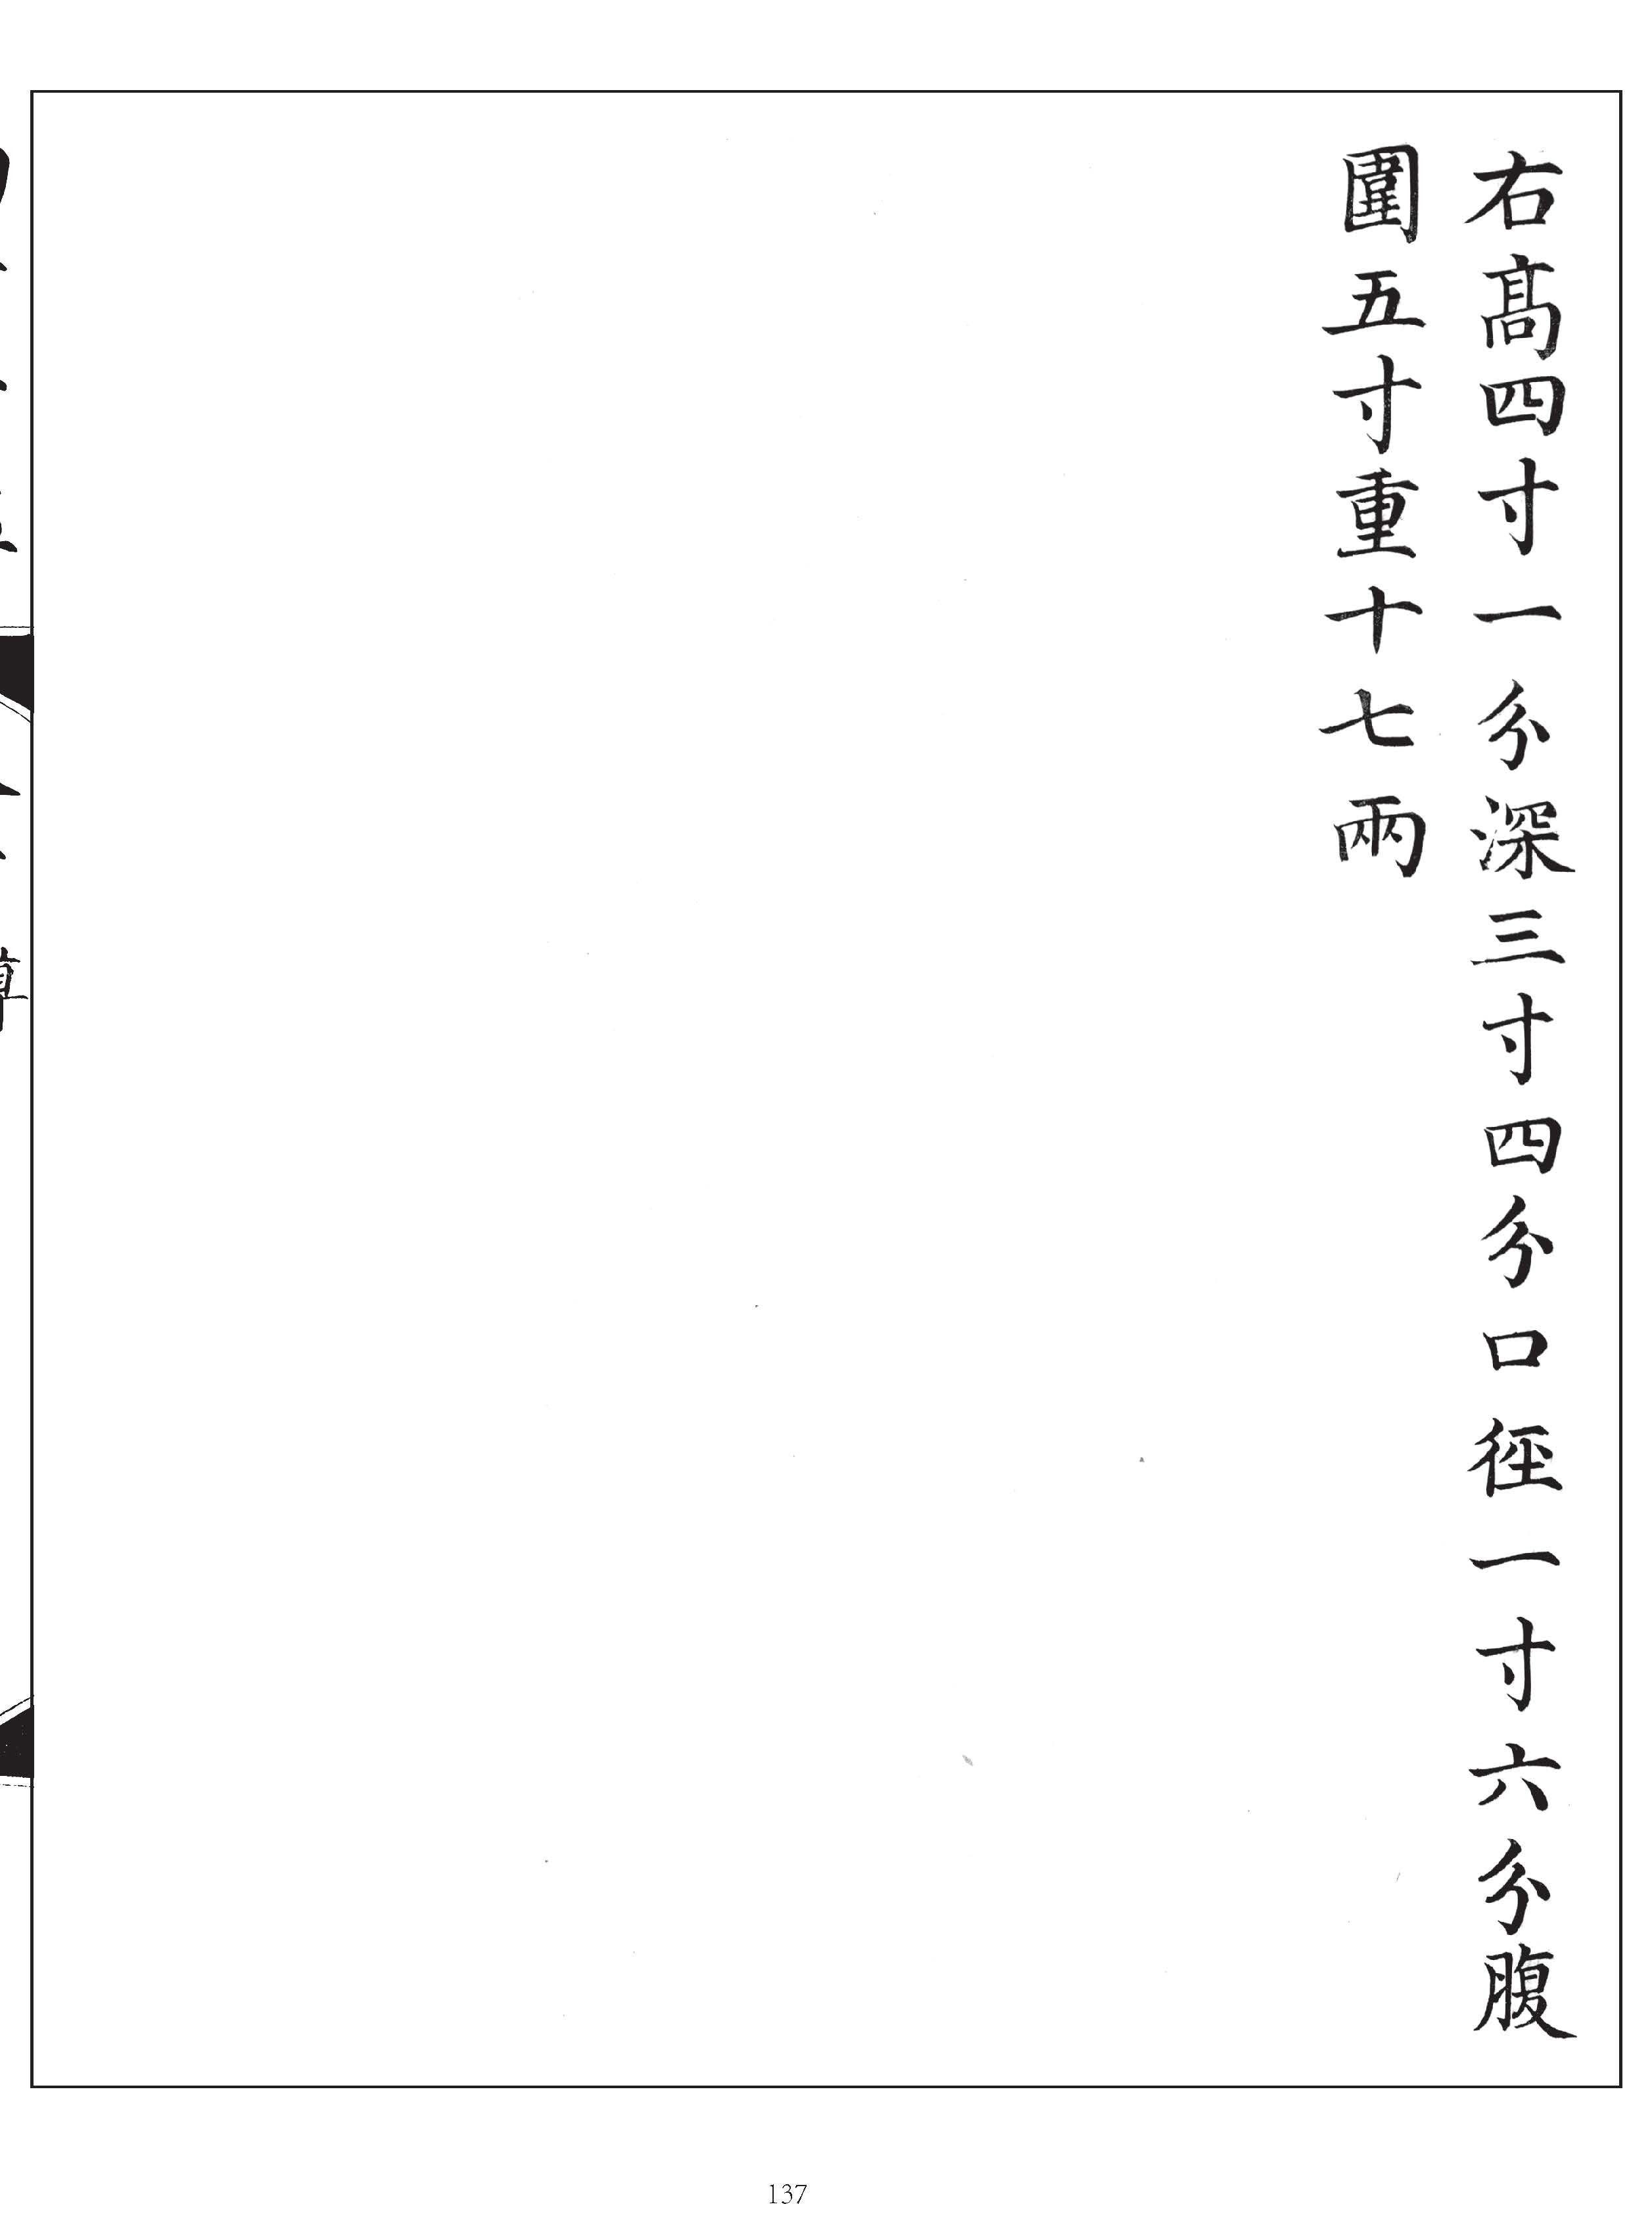 右髙四寸一分深三寸四分口徑一寸六分腹
圍五寸重十七兩
137